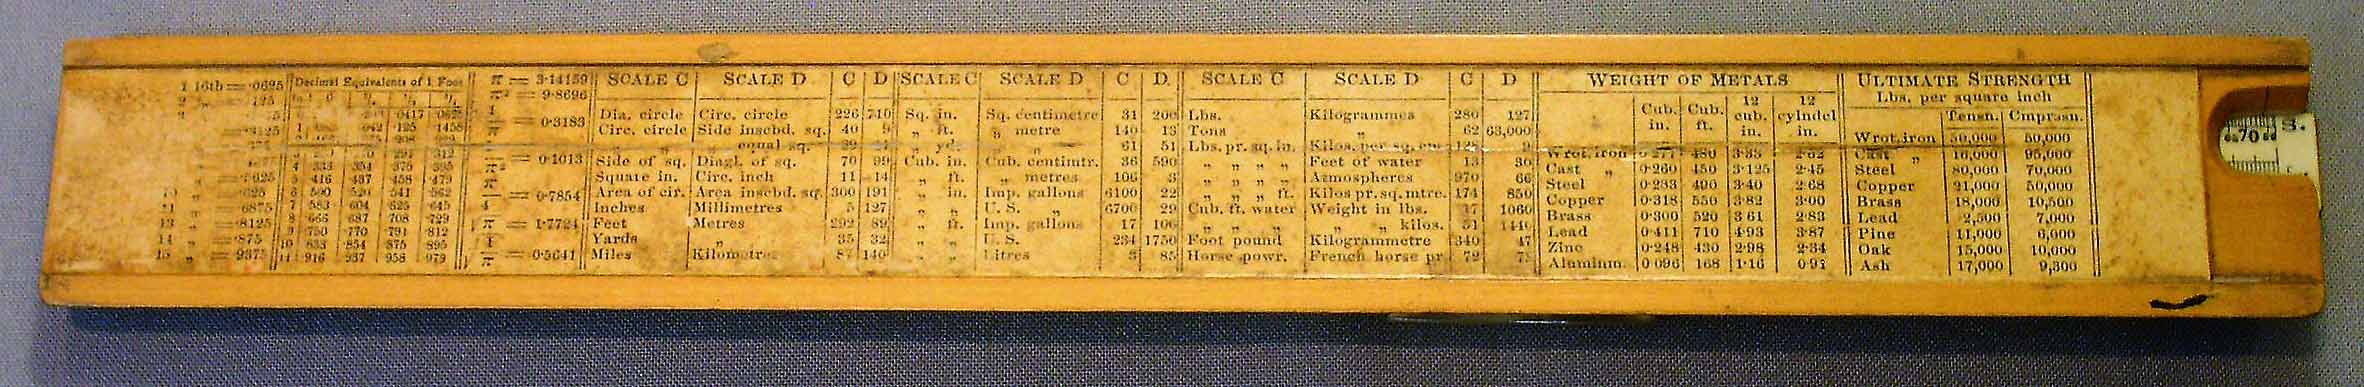 1 16th = ·0625
2 „ ·125
·8125
14 „ = ·875
15 „ = ·9375
Decimal Equivalents of 1 Foot
·0417 ·0625
1 ·125 ·1458
4 333 354 375 395
416 437 458 479
6 500 520 541 562
7 583 604 625 645
8 666 687 708 729
9 750 770 791 812
10 833 854 875 895
11 916 937 958 979
π = 3·14159
π² = 9·8696
1/π = 0·3183
= 0·1013
π/4 = 0·7854
√π = 1·7724
= 0·5641
SCALE C SCALE D C D
Dia. circle Circ. circle 226 710
Circ. circle Side inscbd. sq. 40 9
„ „ equal sq. 39
Side of sq. Diagl. of sq. 70 99
Square in. Circ. inch 11 14
Area of cir. Area inscbd. sq. 300 191
Inches Millimetres 5 127
Feet Metres 292 89
Yards „ 35 32
Miles Kilometres 87 140
SCALE C SCALE D C D.
Sq. in. Sq. centimetre 31 200
„ ft. „ metre 140 13
„ yd. „ „ 61 51
Cub. in. Cub. centimtr. 36 590
„ ft. „ metres 106 3
„ in. Imp. gallons 6100 22
„ „ U. S. „ 6700 29
„ ft. Imp. gallons 17 106
„ „ U. S. 234 1750
„ „ Litres 3 85
SCALE C SCALE D C D
Lbs. Kilogrammes 280 127
Tons „ 62 63,000
Lbs. pr. sq. in. Kilos. per sq. cm.
„ „ „ „ Feet of water 13 30
„ „ „ „ Atmospheres 970 66
„ „ „ ft. Kilos pr. sq. mtre. 174 850
Cub. ft. water Weight in lbs. 17 1060
„ „ „ „ „ kilos. 51 1440
Foot pound Kilogrammetre 340 47
Horse powr. French horse pr. 72 73
WEIGHT OF METALS
Cub. in. Cub. ft. 12 cub. in. 12 cylndcl in.
Wrot. iron 0·277 480 3·33 2·62
Cast „ 0·260 450 3·125 2·45
Steel 0·283 490 3·40 2·68
Copper 0·318 550 3·82 3·00
Brass 0·300 520 3·61 2·83
Lead 0·411 710 4·93 3·87
Zinc 0·248 430 2·98 2·34
Aluminm. 0·096 168 1·16 0·91
ULTIMATE STRENGTH
Lbs. per square inch
Tensn. Cmprosn.
Wrot. iron 50,000 50,000
Cast „ 16,000 95,000
Steel 80,000 70,000
Copper 21,000 50,000
Brass 18,000 10,500
Lead 2,500 7,000
Pine 11,000 6,000
Oak 15,000 10,000
Ash 17,000 9,300
70
S.